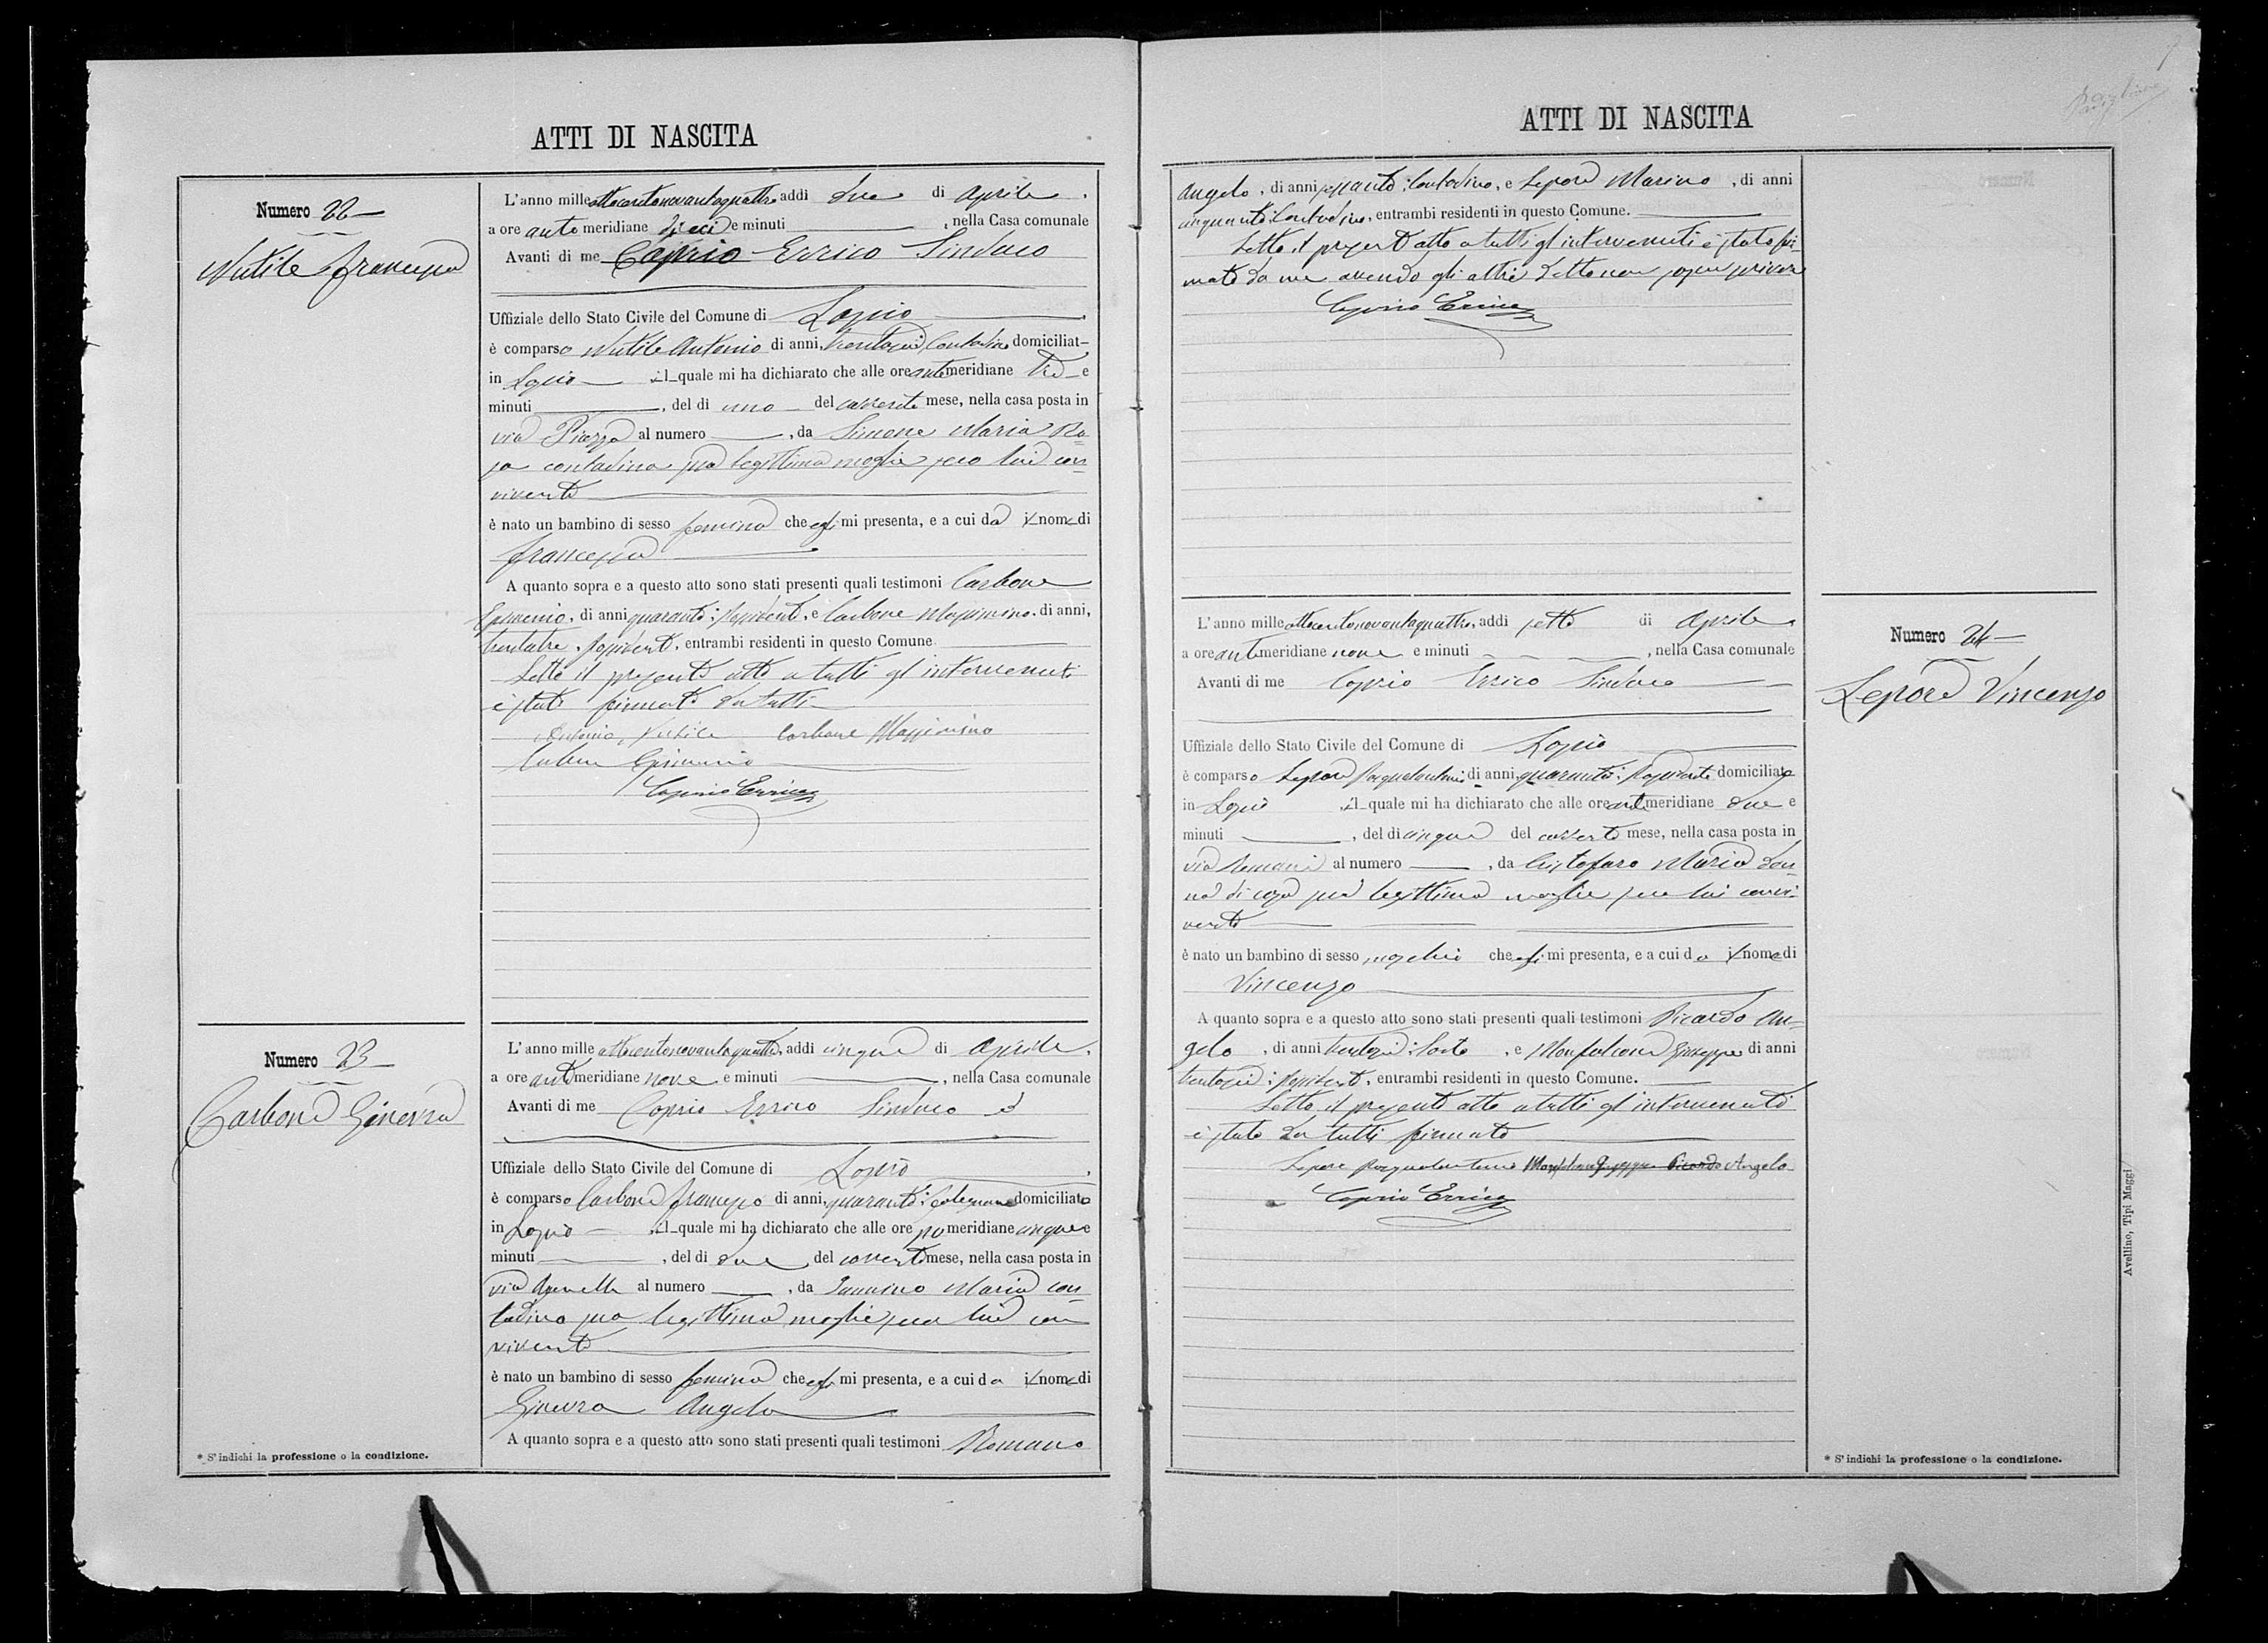 ATTI DI NASCITA
Numero 22
Nutile Francesca
L'anno milleottocentonovantaquattro, addì due di Aprile,
a ore ante meridiane dieci e minuti , nella Casa comunale
Avanti di me Caprio Errico Sindaco
Uffiziale dello Stato Civile del Comune di Lapio
è comparso Nutile Antonio di anni trentasei, Contadino domiciliat
in Lapio il quale mi ha dichiarato che alle ore antimeridiane tre e
minuti , del dì uno del corrente mese, nella casa posta in
via Piazza al numero , da Simone Maria Ro=
sa contadina sua legittima moglie seco lui con=
vivente
è nato un bambino di sesso femina che egli mi presenta, e a cui dà il nome di
Francesca
A quanto sopra e a questo atto sono stati presenti quali testimoni Carbone
Epimenio, di anni quaranta, possidente, e Carbone Massimino, di anni,
trentatre, possidente, entrambi residenti in questo Comune.
Letto il presente atto a tutti gl'intervenuti
è stato firmato da tutti
Antonio Nutile Carbone Massimino
Carbone Epimenio
Caprio Errico
Numero 23
Carbone Ginevra
L'anno mille ottocentonovantaquattro, addì cinque di Aprile,
a ore antimeridiane nove e minuti , nella Casa comunale
Avanti di me Caprio Errico Sindaco
Uffiziale dello Stato Civile del Comune di Lapio
è comparso Carbone Francesco di anni quaranta: falegname domiciliato
in Lapio il quale mi ha dichiarato che alle ore po meridiane cinque e
minuti , del dì due del corrente mese, nella casa posta in
via al numero , da Iannino Maria con=
tadina sua legittima moglie seco lui con
vivente
è nato un bambino di sesso femina che egli mi presenta, e a cui dà il nome di
Ginevra Angela
A quanto sopra e a questo atto sono stati presenti quali testimoni Romano
* S'indichi la professione o la condizione.
ATTI DI NASCITA
Angelo, di anni sessanta: Contadino, e Lepore Marino, di anni
cinquanta: Contadino, entrambi residenti in questo Comune.
Letto il presente atto a tutti gl'intervenuti è stato fir=
mato da me avendo gli altri detto non saper scrivere
Caprio Errico
L'anno milleottocentonovantaquattro, addì sette di Aprile
a ore antimeridiane nove e minuti , nella Casa comunale
Avanti di me Caprio Errico Sindaco
Uffiziale dello Stato Civile del Comune di Lapio
è comparso Lepore Pasqualantonio di anni quaranta: Possidente domiciliato
in Lapio il quale mi ha dichiarato che alle ore antimeridiane due e
minuti , del dì cinque del corrente mese, nella casa posta in
via Romani al numero , da Cristofaro Maria don=
na di casa sua legittima moglie seco lui convi=
vente
è nato un bambino di sesso maschio che egli mi presenta, e a cui dà il nome di
Vincenzo
A quanto sopra e a questo atto sono stati presenti quali testimoni Picardo An=
gelo, di anni trentasei: Sarto, e Monfalcone Giuseppe di anni
trentasei: possidente, entrambi residenti in questo Comune.
Letto il presente atto a tutti gl'intervenuti
è stato da tutti firmato
Lepore Pasqualantonio Monfalcone Giuseppe Picardo Angelo
Caprio Errico
Numero 24
Lepore Vincenzo
* S'indichi la professione o la condizione.
Avellino, Tipi Maggi